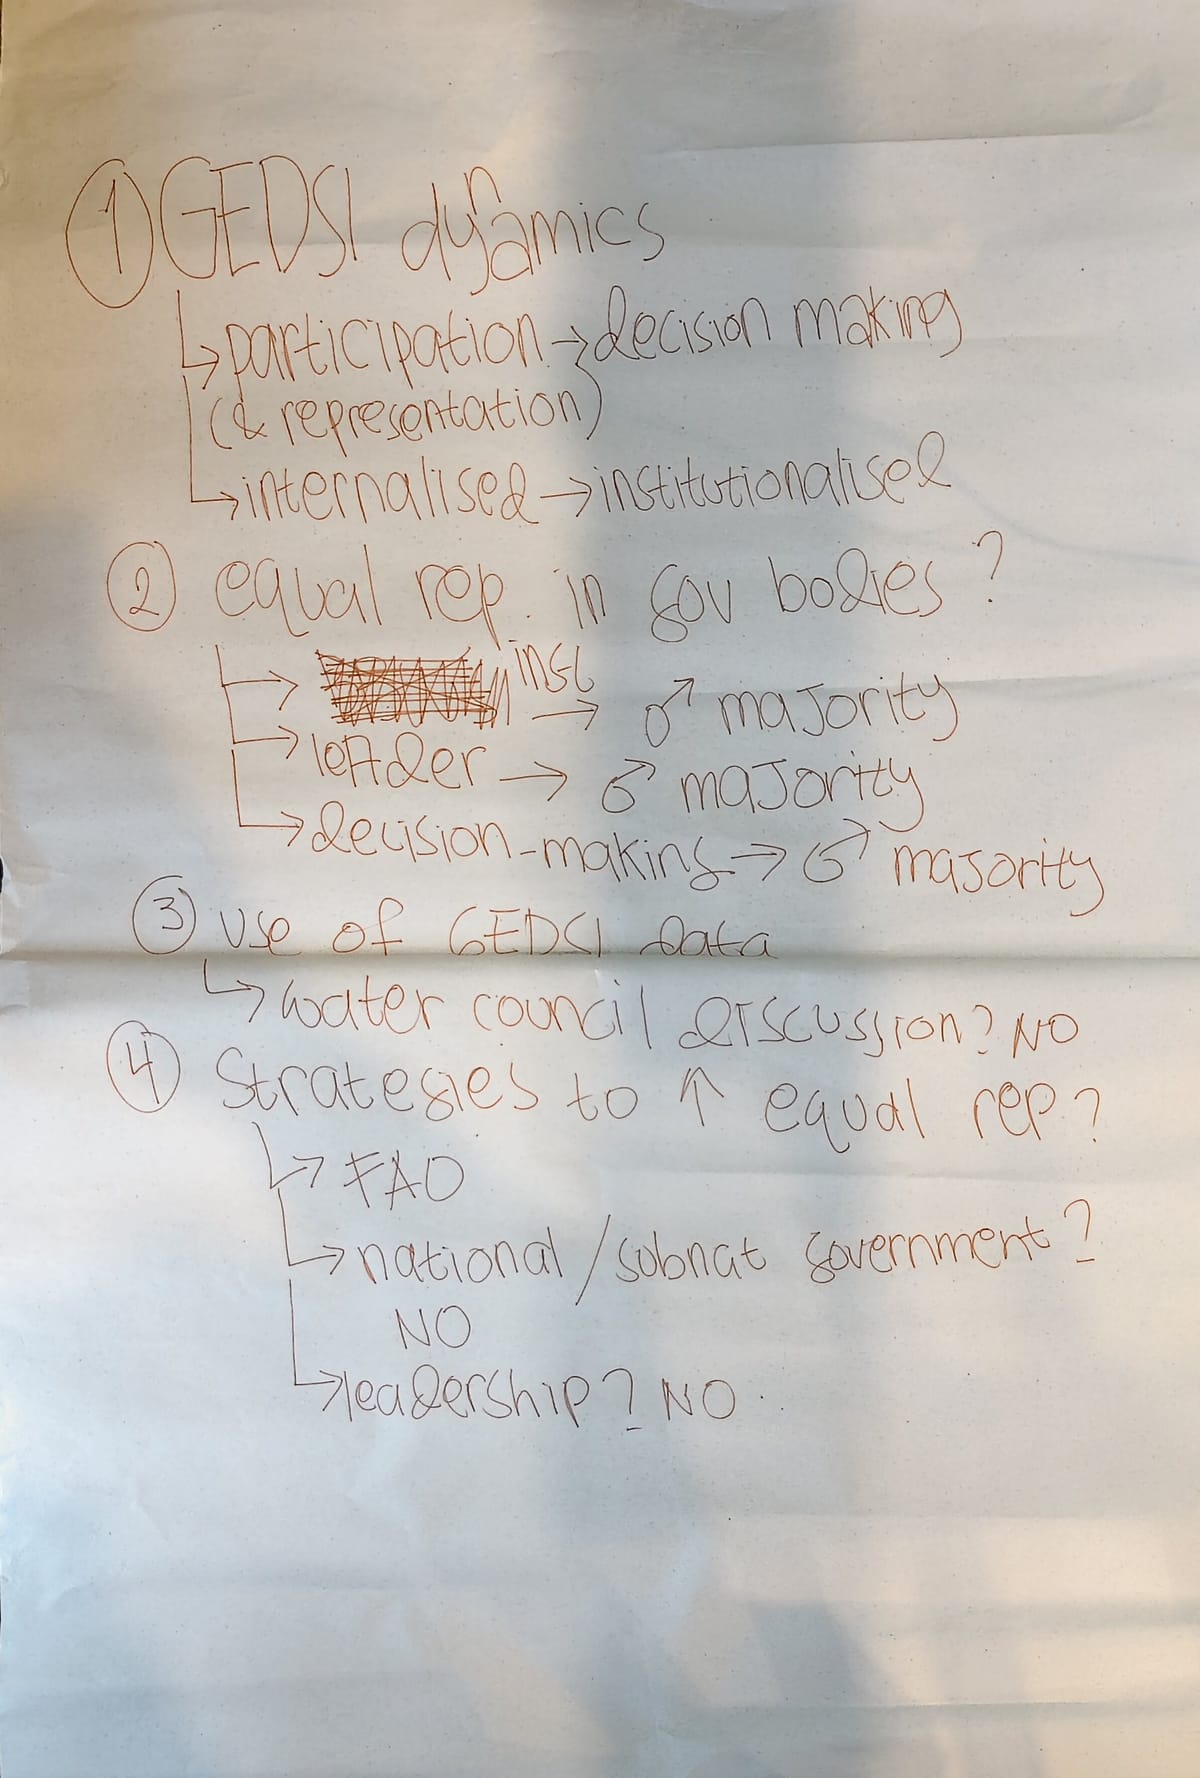 ① GEDSI dynamics
↳ participation → decision making
(& representation)
↳ internalised → institutionalised
② equal rep. in gov bodies?
→ inst → ♂ majority
→ leader → ♂ majority
↳ decision-making → ♂ majority
③ use of GEDSI data
↳ water council discussion? NO
④ Strategies to ↑ equal rep?
↳ FAO
↳ national/subnat government?
NO
↳ leadership? NO